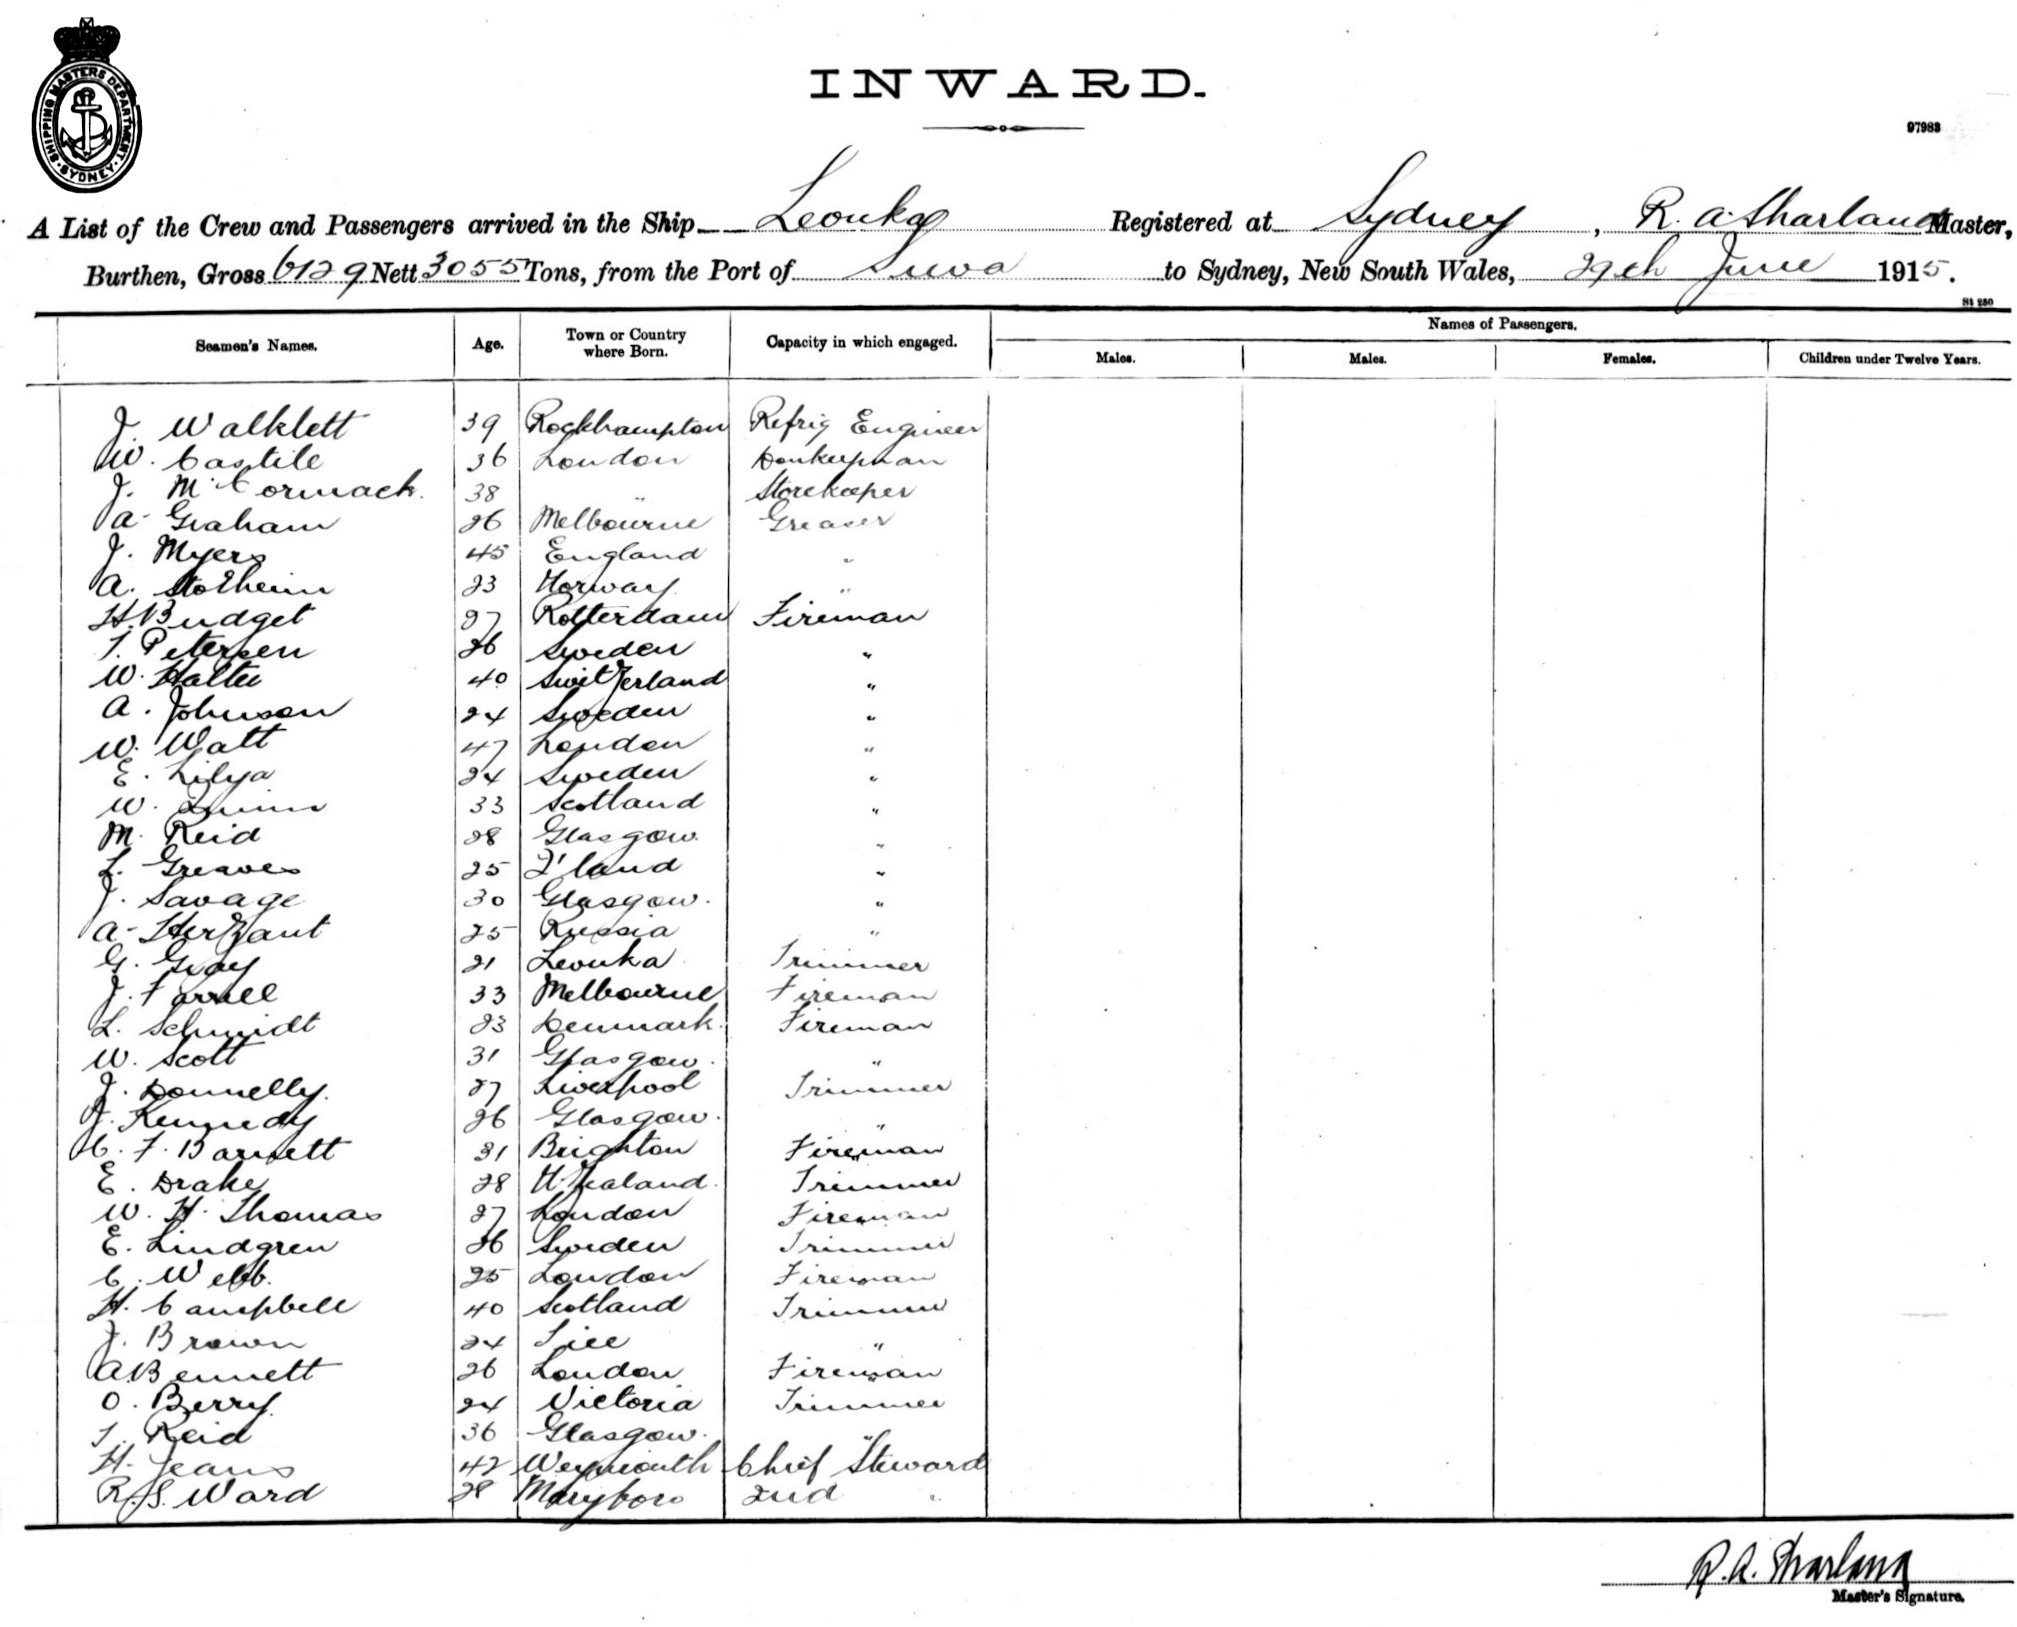 SHIPPING MASTERS DEPARTMENT · SYDNEY ·
INWARD.
97983
A List of the Crew and Passengers arrived in the Ship Levuka Registered at Sydney, R. A. Sharland Master,
Burthen, Gross 6129 Nett 3055 Tons, from the Port of Suva to Sydney, New South Wales, 29th June 1915.
St 250
Seamen's Names. Age. Town or Country where Born. Capacity in which engaged. Names of Passengers.
Males. Males. Females. Children under Twelve Years.
J. Walklett 39 Rockhampton Refrig Engineer
W. Castile 36 London Donkeyman
J. McCormack. 38 " Storekeeper
A. Graham 26 Melbourne Greaser
J. Myers 45 England "
A. Stolheim 23 Norway "
H. Budget 27 Rotterdam Fireman
T. Petersen 26 Sweden "
W. 40 Switzerland "
A. Johnson 24 Sweden "
W. Watt 47 London "
E. Lilya 24 Sweden "
W. Quinn 33 Scotland "
M. Reid 28 Glasgow. "
L. Greaves 25 Q'land "
J. Savage 30 Glasgow. "
A. Herzant 25 Russia "
G. Gray 21 Levuka Trimmer
J. Farrell 33 Melbourne Fireman
L. Schmidt 23 Denmark. Fireman
W. Scott 31 Glasgow. "
J. Donnelly. 27 Liverpool Trimmer
J. Kennedy 26 Glasgow. "
C. F. Barnett 31 Brighton Fireman
E. Drake 28 N. Zealand. Trimmer
W. H. Thomas 27 London Fireman
E. Lindgren 26 Sweden Trimmer
C. Webb. 25 London Fireman
H. Campbell 40 Scotland Trimmer
J. Brown 24 "
A. Bennett 26 London Fireman
O. Berry. 24 Victoria Trimmer
T. Reid 36 Glasgow. "
H. Jeans 42 Weymouth Chief Steward
R. S. Ward 28 Maryboro 2nd "
R. A. Sharland
Master's Signature.